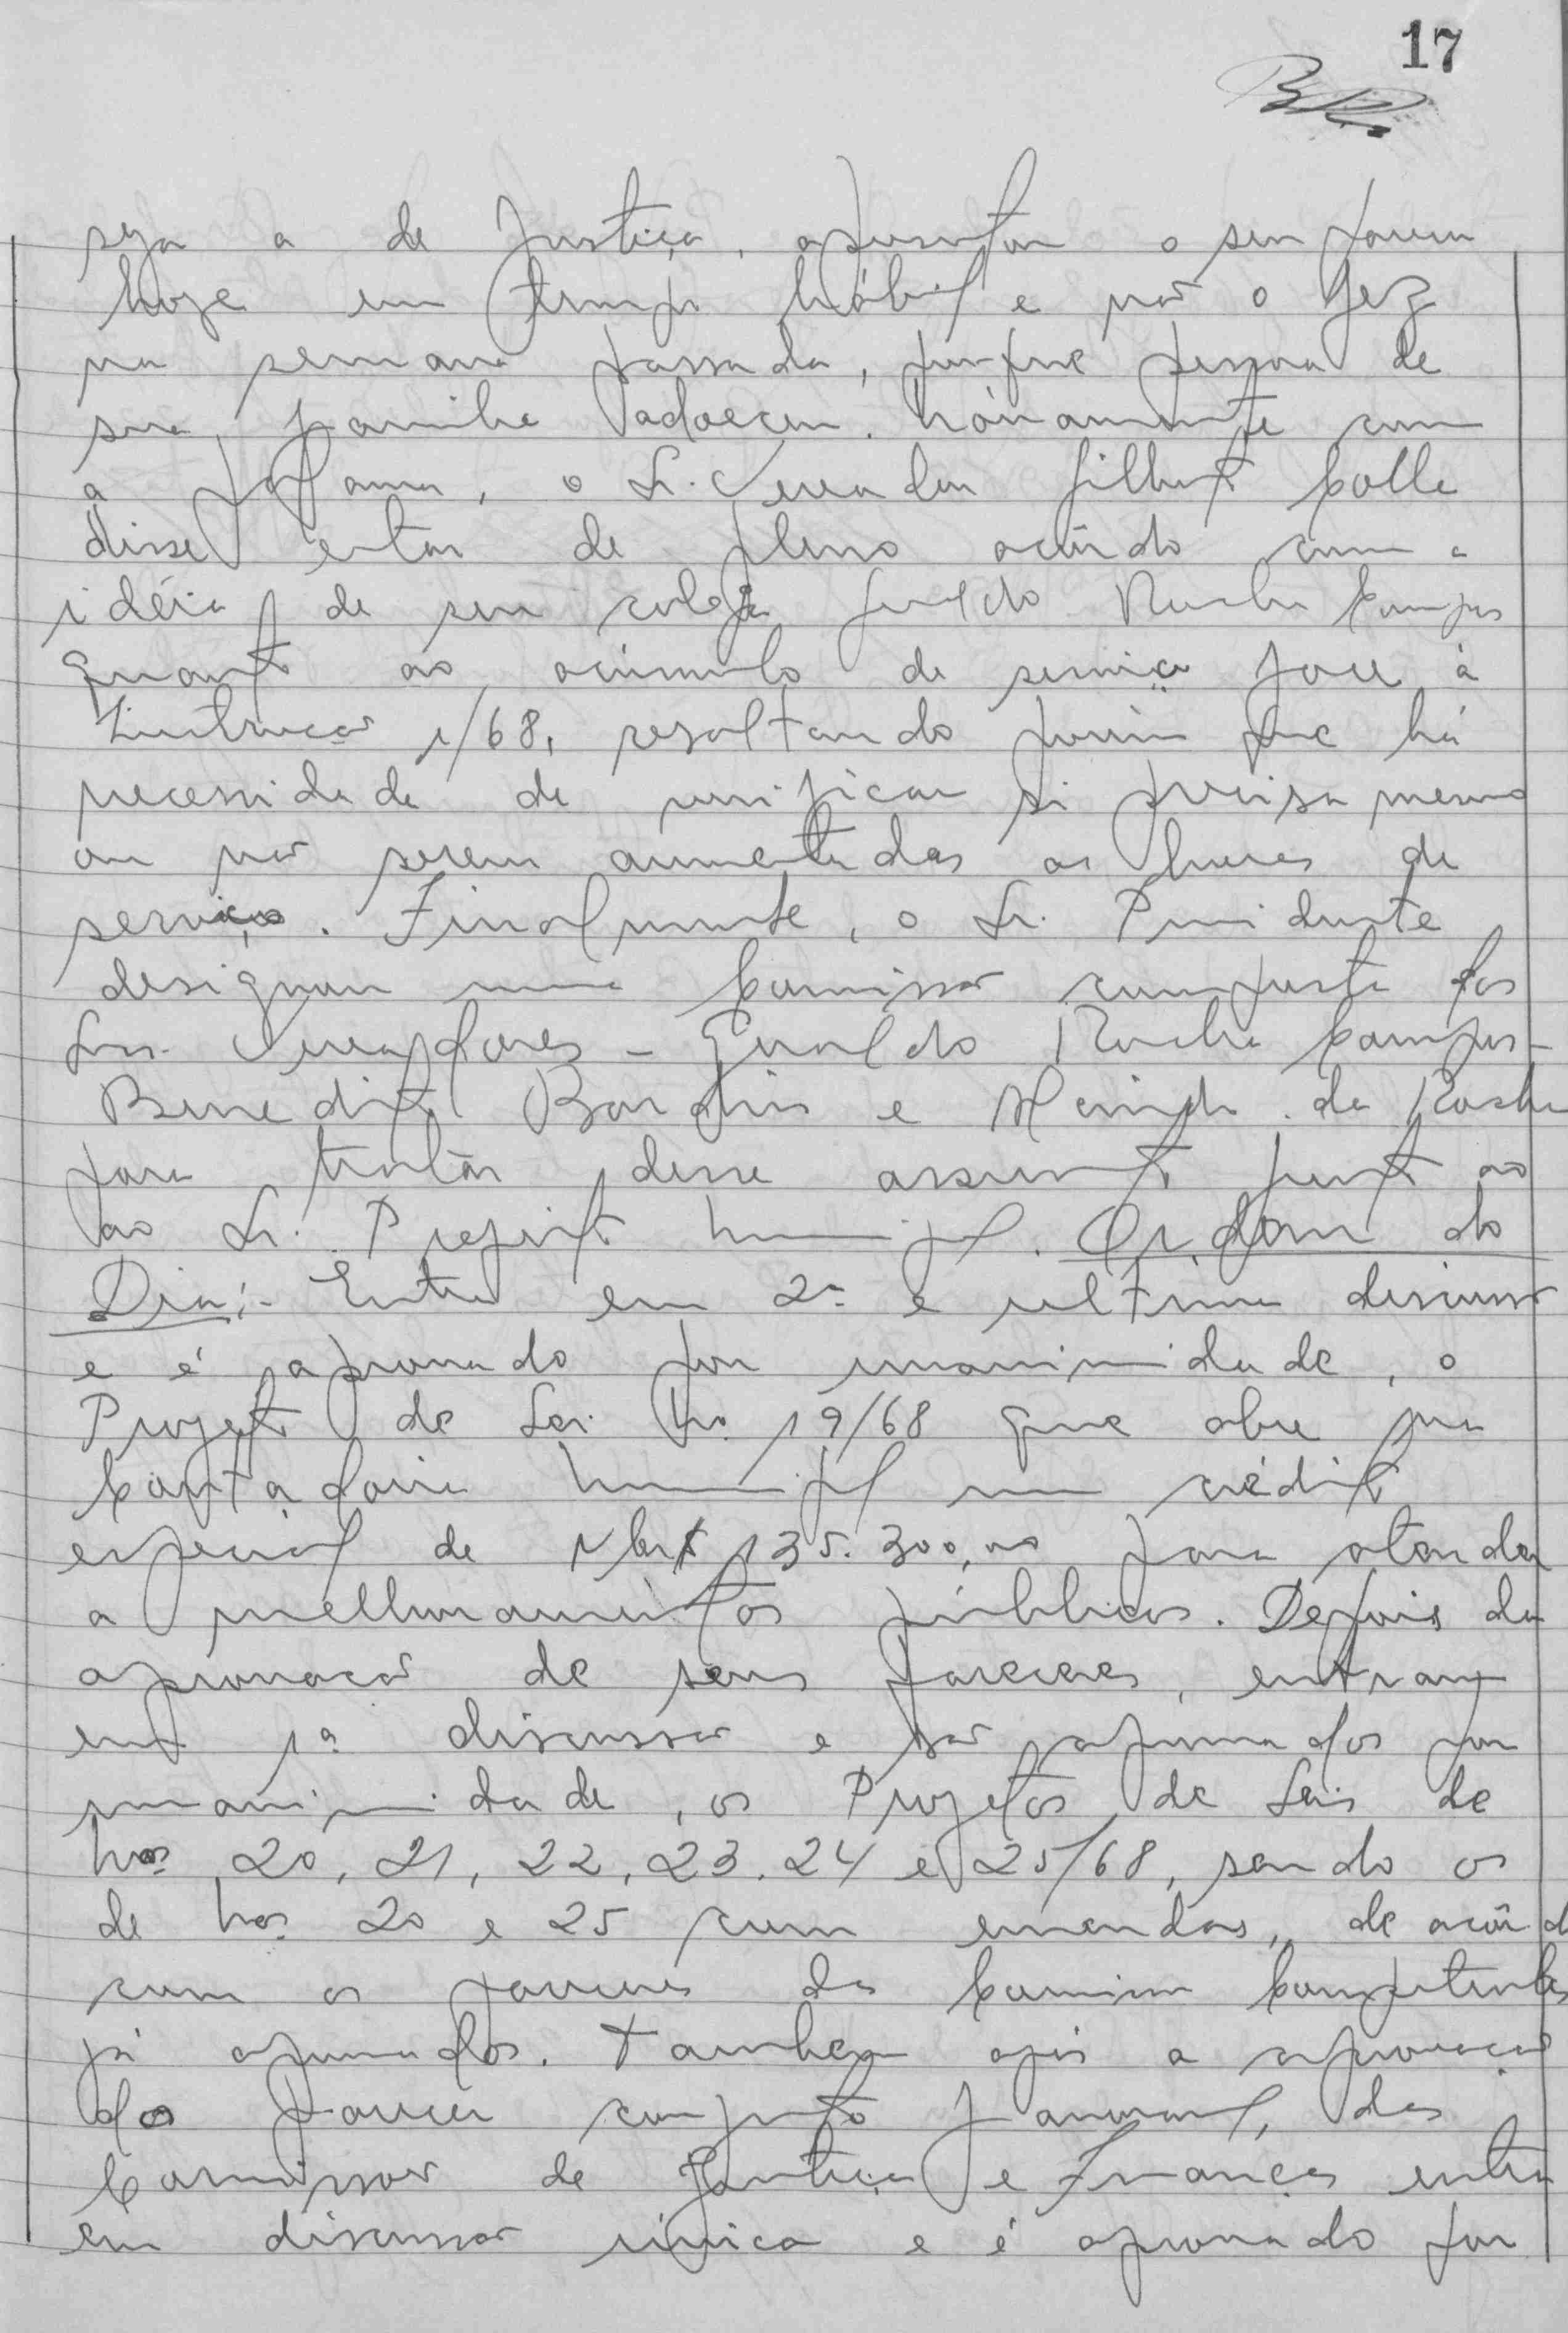 17
seja a de Justiça, apresentou o seu parecer
hoje em tempo hábil e não o fez
na semana passada, porque pessoa de
sua família adoeceu. Novamente com
a palavra, o Sr. Vereador Gilberto Calle
disse estar de pleno acôrdo com a
idéia de seu colega Geraldo Rocha Campos
quanto ao acúmulo de serviço face à
Instrução 1/68, resaltando porém que há
necessidade de verificar si precisa mesmo
ou não serem aumentadas as horas de
serviço. Finalmente, o Sr. Presidente
designou uma Comissão composta dos
Srs. Vereadores - Geraldo Rocha Campos -
Benedito Bardin e da Rocha
para tratar desse assunto junto ao
ao Sr. Prefeito Municipal. Ordem do
Dia:- Entra em 2ª e ultima discussão
e é aprovado por unanimidade, o
Projeto de Lei Nº 19/68 que abre na
Contadoria Municipal um crédito
especial de NCr$ 135.300,00 para atender
a melhoramentos públicos. Depois da
aprovação de seus pareceres, entram
em 1ª discussão e são aprovados por
unanimidade, os Projetos de Leis de
Nos 20, 21, 22, 23, 24 e 25/68, sendo os
de Nos 20 e 25 com emendas, de acôrd
com os pareceres da Comissão Competentes
já aprovados. Também após a aprovação
do Parecer conjunto favoravel, das
Comissões de Justiça e Finanças entra
em discussão única e é aprovado por